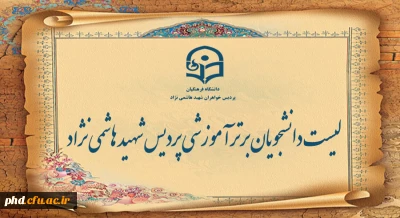 دانشگاه فرهنگیان
پردیس خواهران شهید هاشمی نژاد
لیست دانشجویان برتر آموزشی پردیس شهید هاشمی نژاد
phd.cfu.ac.ir